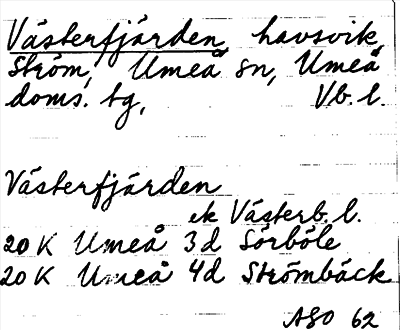 Västerfjärden, havsvik,
Ström, Umeå sn, Umeå
doms. tg, Vb. l.
Västerfjärden
ek Västerb. l.
20 K Umeå 3d Sörböle
20 K Umeå 4d Strömbäck
ASO 62